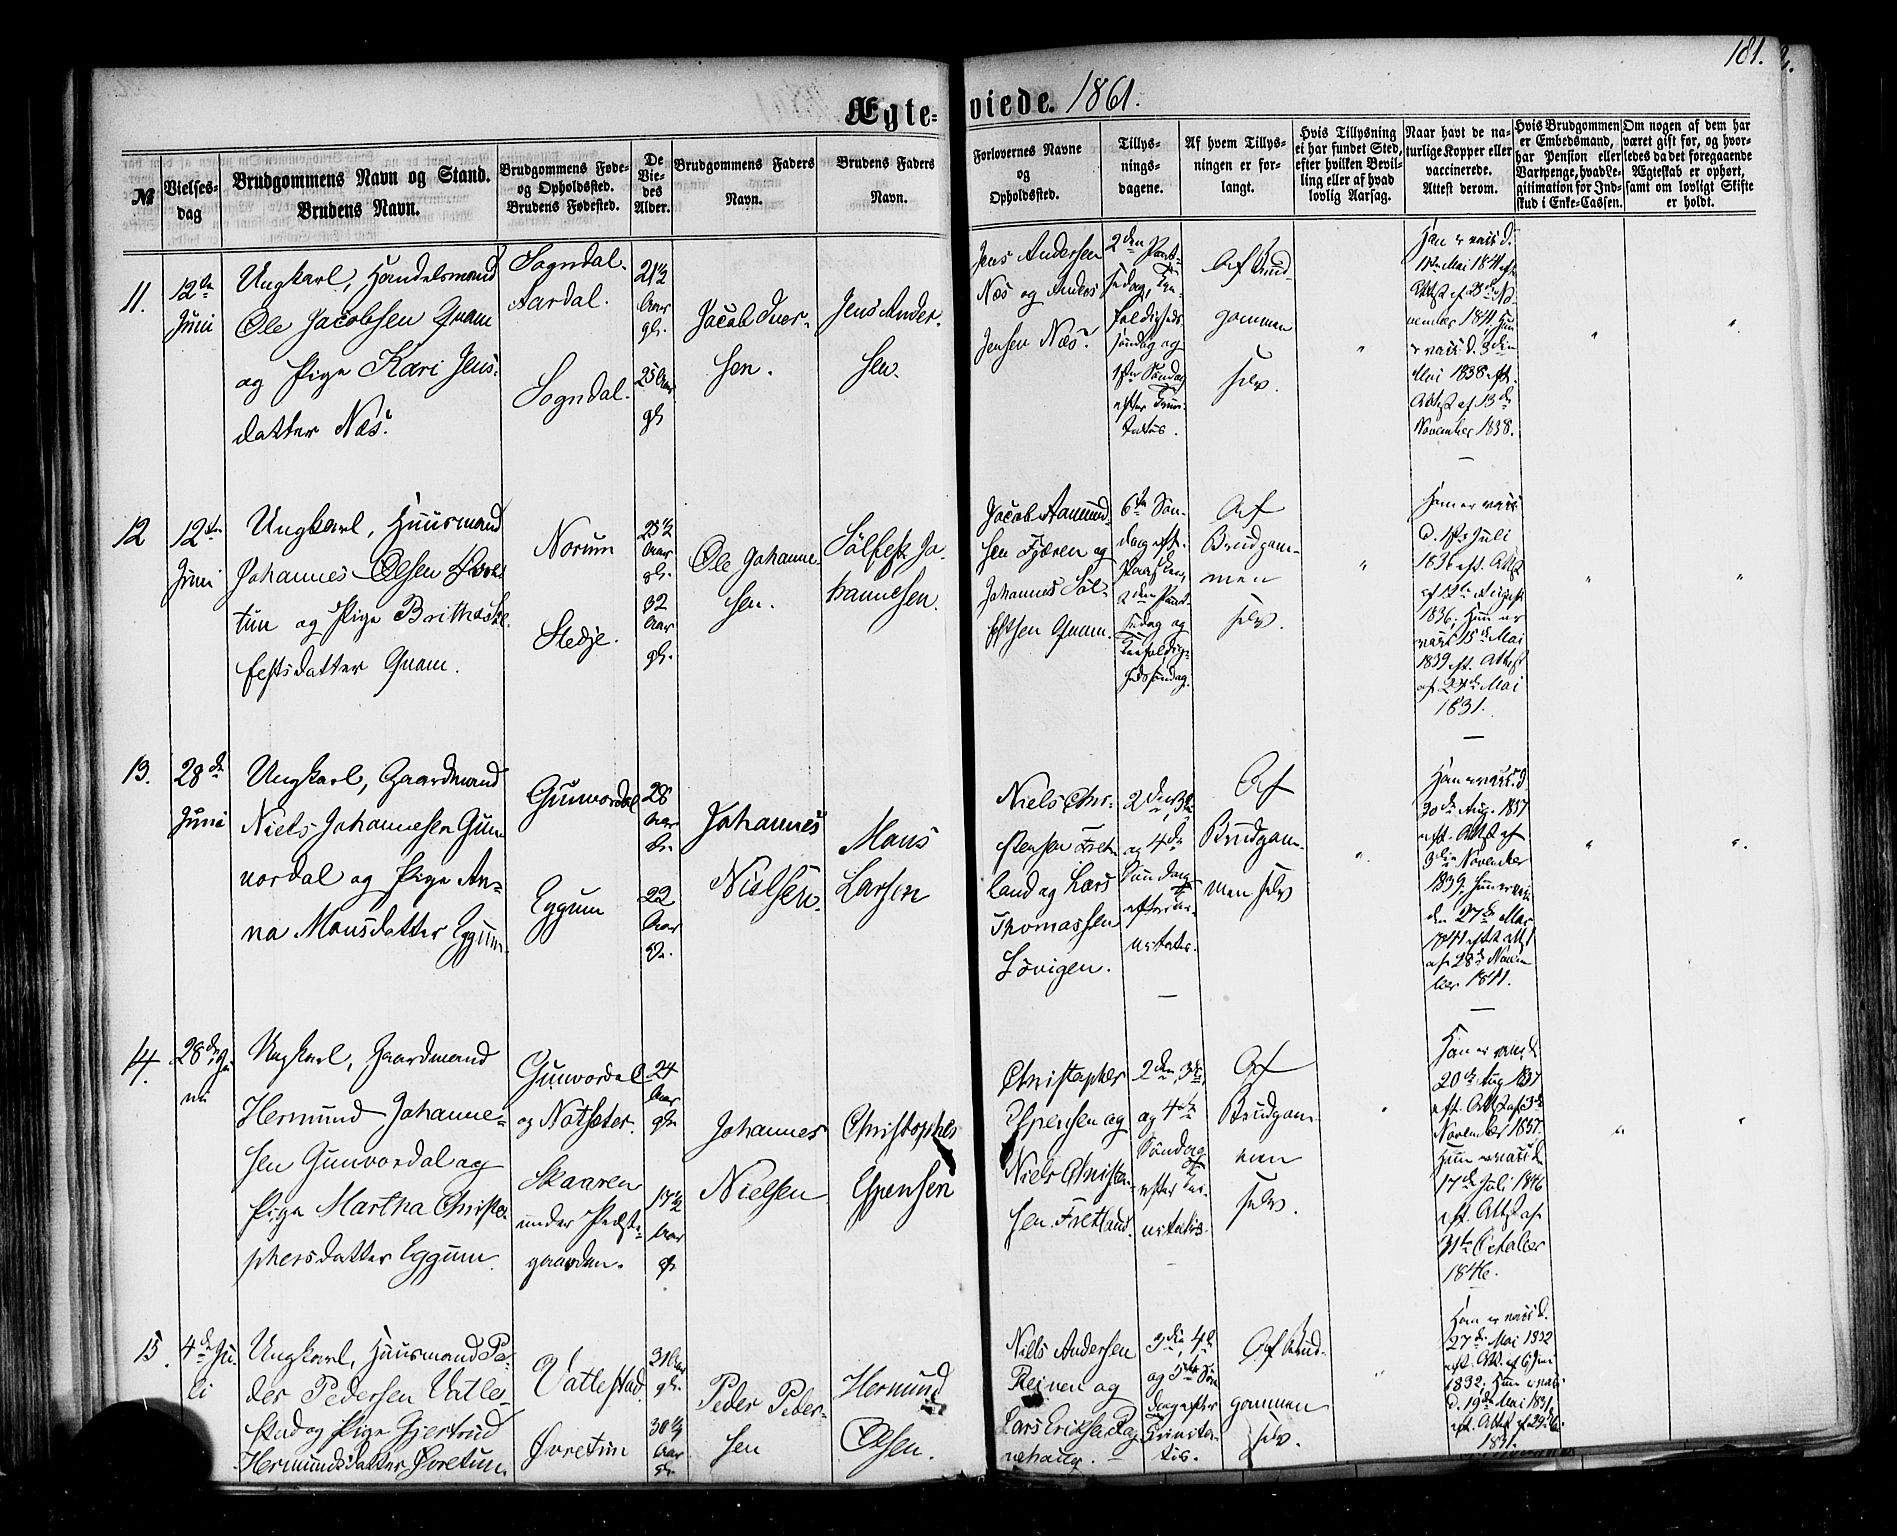 181.
Ægteviede. 1861.
№
Vielses-
dag
Brudgommens Navn og Stand.
Brudens Navn.
Brudgommens Føde-
og Opholdssted.
Brudens Fødested.
De
Vie-
des
Alder.
Brudgommens Faders
Navn.
Brudens Faders
Navn.
Forlovernes Navne
og
Opholdssted.
Tillys-
nings-
dagene.
Af hvem Tillys-
ningen er for-
langt.
Hvis Tillysning
ei har fundet Sted,
efter hvilken Bevil-
ling eller af hvad
lovlig Aarsag.
Naar havt de na-
turlige Kopper eller
vaccinerede.
Attest derom.
Hvis Brudgommen
er Embedsmand,
har Pension eller
Vartpenge, hvad Le-
gitimation for Ind-
skud i Enke-Cassen.
Om nogen af dem har
været gift før, og hvor-
ledes da det foregaaende
Ægteskab er ophørt,
samt om lovligt Skifte
er holdt.
11.
12te
Juni
Ungkarl, Handelsmand
Ole Jacobsen Qvam
og Pige Kari Jens-
datter Næs.
Sogndal.
Aardal.
Sogndal.
21½
Aar
gl.
25 Aar
gl.
Jacob Iver-
sen.
Jens Ander-
sen.
Jens Andersen
Næs og Anders
Jensen Næs.
2den Pint-
sedag, Tre-
foldigheds
søndag og
1ste Søndag
efter Trini-
tatis.
Af Brud-
gommen
selv.
Han er vacc. d.
11te Mai 1841 eft.
Attest af 28de No-
vember 1841, Hun
er vacc. d. 3die
Mai 1838 eft.
Attest af 13de
November 1838.
12
12te
Juni
Ungkarl, Huusmand
Johannes Olsen
tun og Pige Britha Søl-
festsdatter Qvam.
Norum
Stedje.
25½
Aar
gl.
32
Aar
gl.
Ole Johanne-
sen.
Sølfest Jo-
hannesen.
Jacob Aamund-
sen Fjæren og
Johannes Søl-
festsen Qvam.
6te Søn-
dag eft.
Paasken,
2den Pint-
sedag og
Trefoldig-
hedssøndag.
Af
Brudgom-
men
selv.
Han er vacc.
d. 1ste Juli
1836 eft. Attest
af 12te August
1836; Hun er
vacc. 15de Mai
1839 eft. Attest
af 27de Mai
1831.
13.
28de
Juni
Ungkarl, Gaardmand
Niels Johannesen Gun-
vordal og Pige An-
na Monsdatter Eggum.
Gunvordal
Eggum
28
Aar
gl.
22
Aar
gl.
Johannes
Nielsen.
Mons
Larsen
Niels Chri-
stensen Fret-
land og Lars
Thomassen
Løvigen.
2den, 3die
og 4de
Søndag
efter Tri-
nitatis.
Af
Brudgom-
men selv
Han er vacc. d.
20de Aug. 1837
eft. Attest af
3die November
1839; Hun er vacc.
den 27de Mai
1841 eft. Att.
af 28de Novem-
ber 1841.
14.
28de Ju-
ni
Ungkarl, Gaardmand
Hermund Johanne-
sen Gunvordal og
Pige Martha Christo-
phersdatter Eggum.
Gunvordal
og Notseter.
Skaaren
under Præste-
gaarden.
24
Aar
gl.
17½
Aar
gl.
Johannes
Nielsen
Christopher
Espensen
Christopher
Espensen og
Niels Christen-
sen Fretland.
2den, 3die,
og 4de
Søndag
efter Tri-
nitatis.
Af
Brudgom-
men
selv.
Han er vacc. d.
20de Aug 1837
eft. Attest af 3die
November 1837.
Hun er vacc. d.
17de Juli 1846
eft. Attest af
31te October
1846.
15.
4de Ju-
li
Ungkarl, Huusmand Pe-
der Pedersen Vatle-
stad og Pige Gjertrud
Hermundsdatter Øvretun.
Vatlestad.
Øvretun
31 Aar
gl.
30½
Aar
gl.
Peder Peder-
sen
Hermund
Olsen.
Niels Andersen
Reinen og
Lars Eriksen Rag-
nehaug.
3die, 4de
og 5te Søn-
dag efter
Trinita-
tis.
Af Brud-
gommen
selv.
Han er vacc. d.
27de Mai 1832
eft. Att. af 6 Juni
1832, Hun er vacc.
d. 19de Mai 1831.
eft. Attest af 29de
1831.